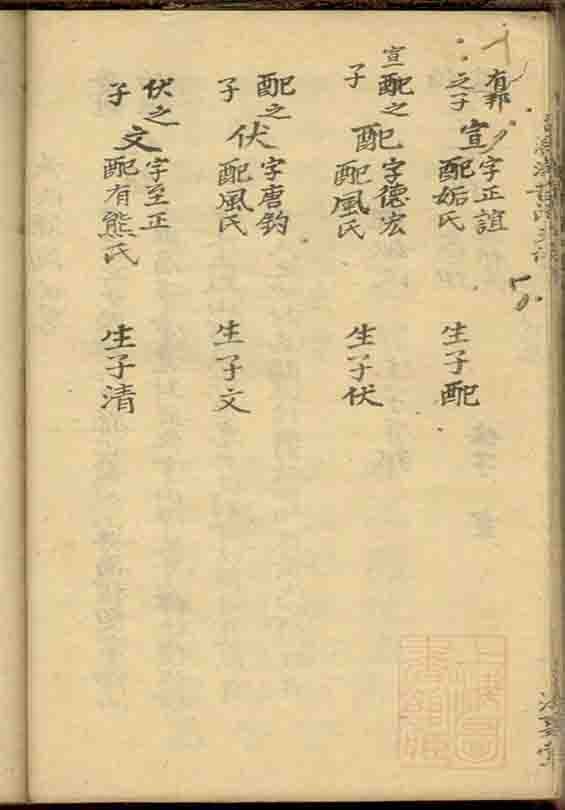 有邦
之子
宣
字正誼
配姤氏
生子配
宣配之
子
配
字德宏
配風氏
生子伏
配之
子
伏
字唐鈞
配風氏
生子文
伏之
子
文
字至正
配有熊氏
生子清